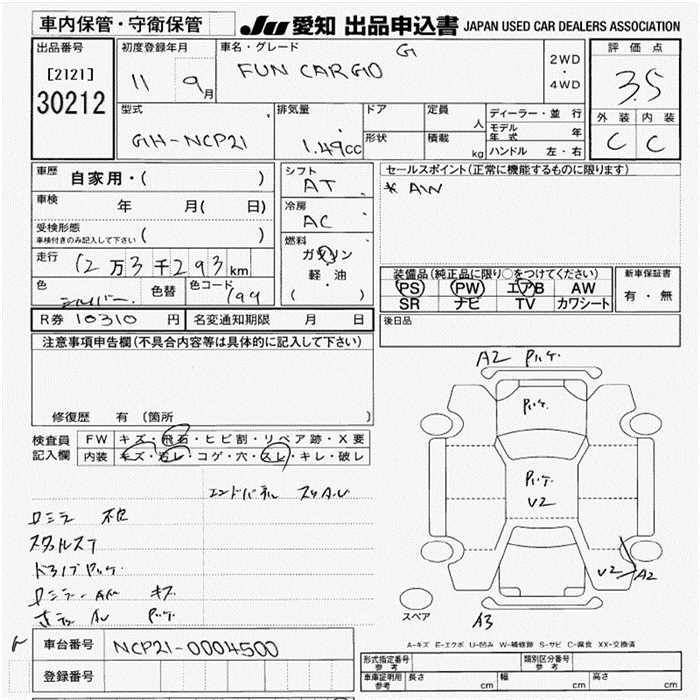 車内保管・守衛保管
JU 愛知 出品申込書 JAPAN USED CAR DEALERS ASSOCIATION
出品番号
[2121]
30212
初度登録年月
11 9月
車名・グレード
FUN CARGO G
2WD
・
4WD
評価点
3.5
外装 内装
C C
型式
GH-NCP21
排気量
1.49cc
ドア
形状
定員 人
積載 kg
ディーラー・並行
モデル年式 年
ハンドル 左・右
車歴 自家用・( )
車検 年 月( 日)
受検形態
車検付きのみ記入して下さい ( )
走行 12万3千293km
色 シルバー 色替 色コード 199
シフト
AT
冷房
AC
燃料
ガソリン
軽・油
( ・ )
セールスポイント(正常に機能するものに限ります)
* AW
装備品(純正品に限り○をつけてください)
PS PW エアB AW
SR ナビ TV カワシート
新車保証書
有・無
R券 10310 円 名変通知期限 月 日
後日品
注意事項申告欄(不具合内容等は具体的に記入して下さい)
修復歴 有 (箇所
検査員
記入欄
FW キズ・飛石・ヒビ割・リペア跡・X要
内装 キズ・汚レ・コゲ・穴・スレ・キレ・破レ
A2
V2
V2 A2
A3
スペア
A-キズ E-エクボ U-凹み W-補修跡 S-サビ C-腐食 XX-交換済
車台番号 NCP21-0004500
登録番号
形式指定番号
参考
類別区分番号
参考
車庫証明用
参考
長さ cm 幅 cm 高さ cm